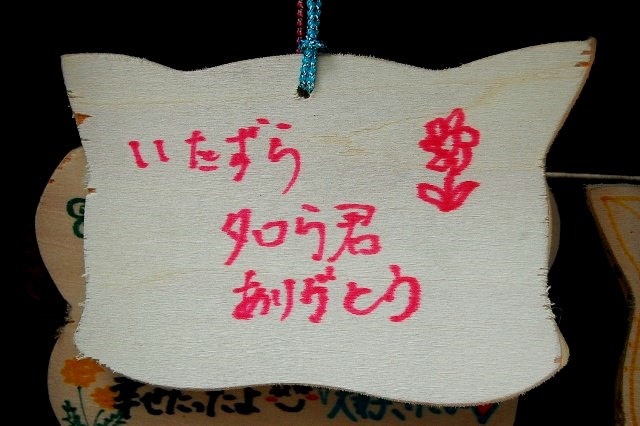 いたずら
タロう君
ありがとう
幸せだったよ